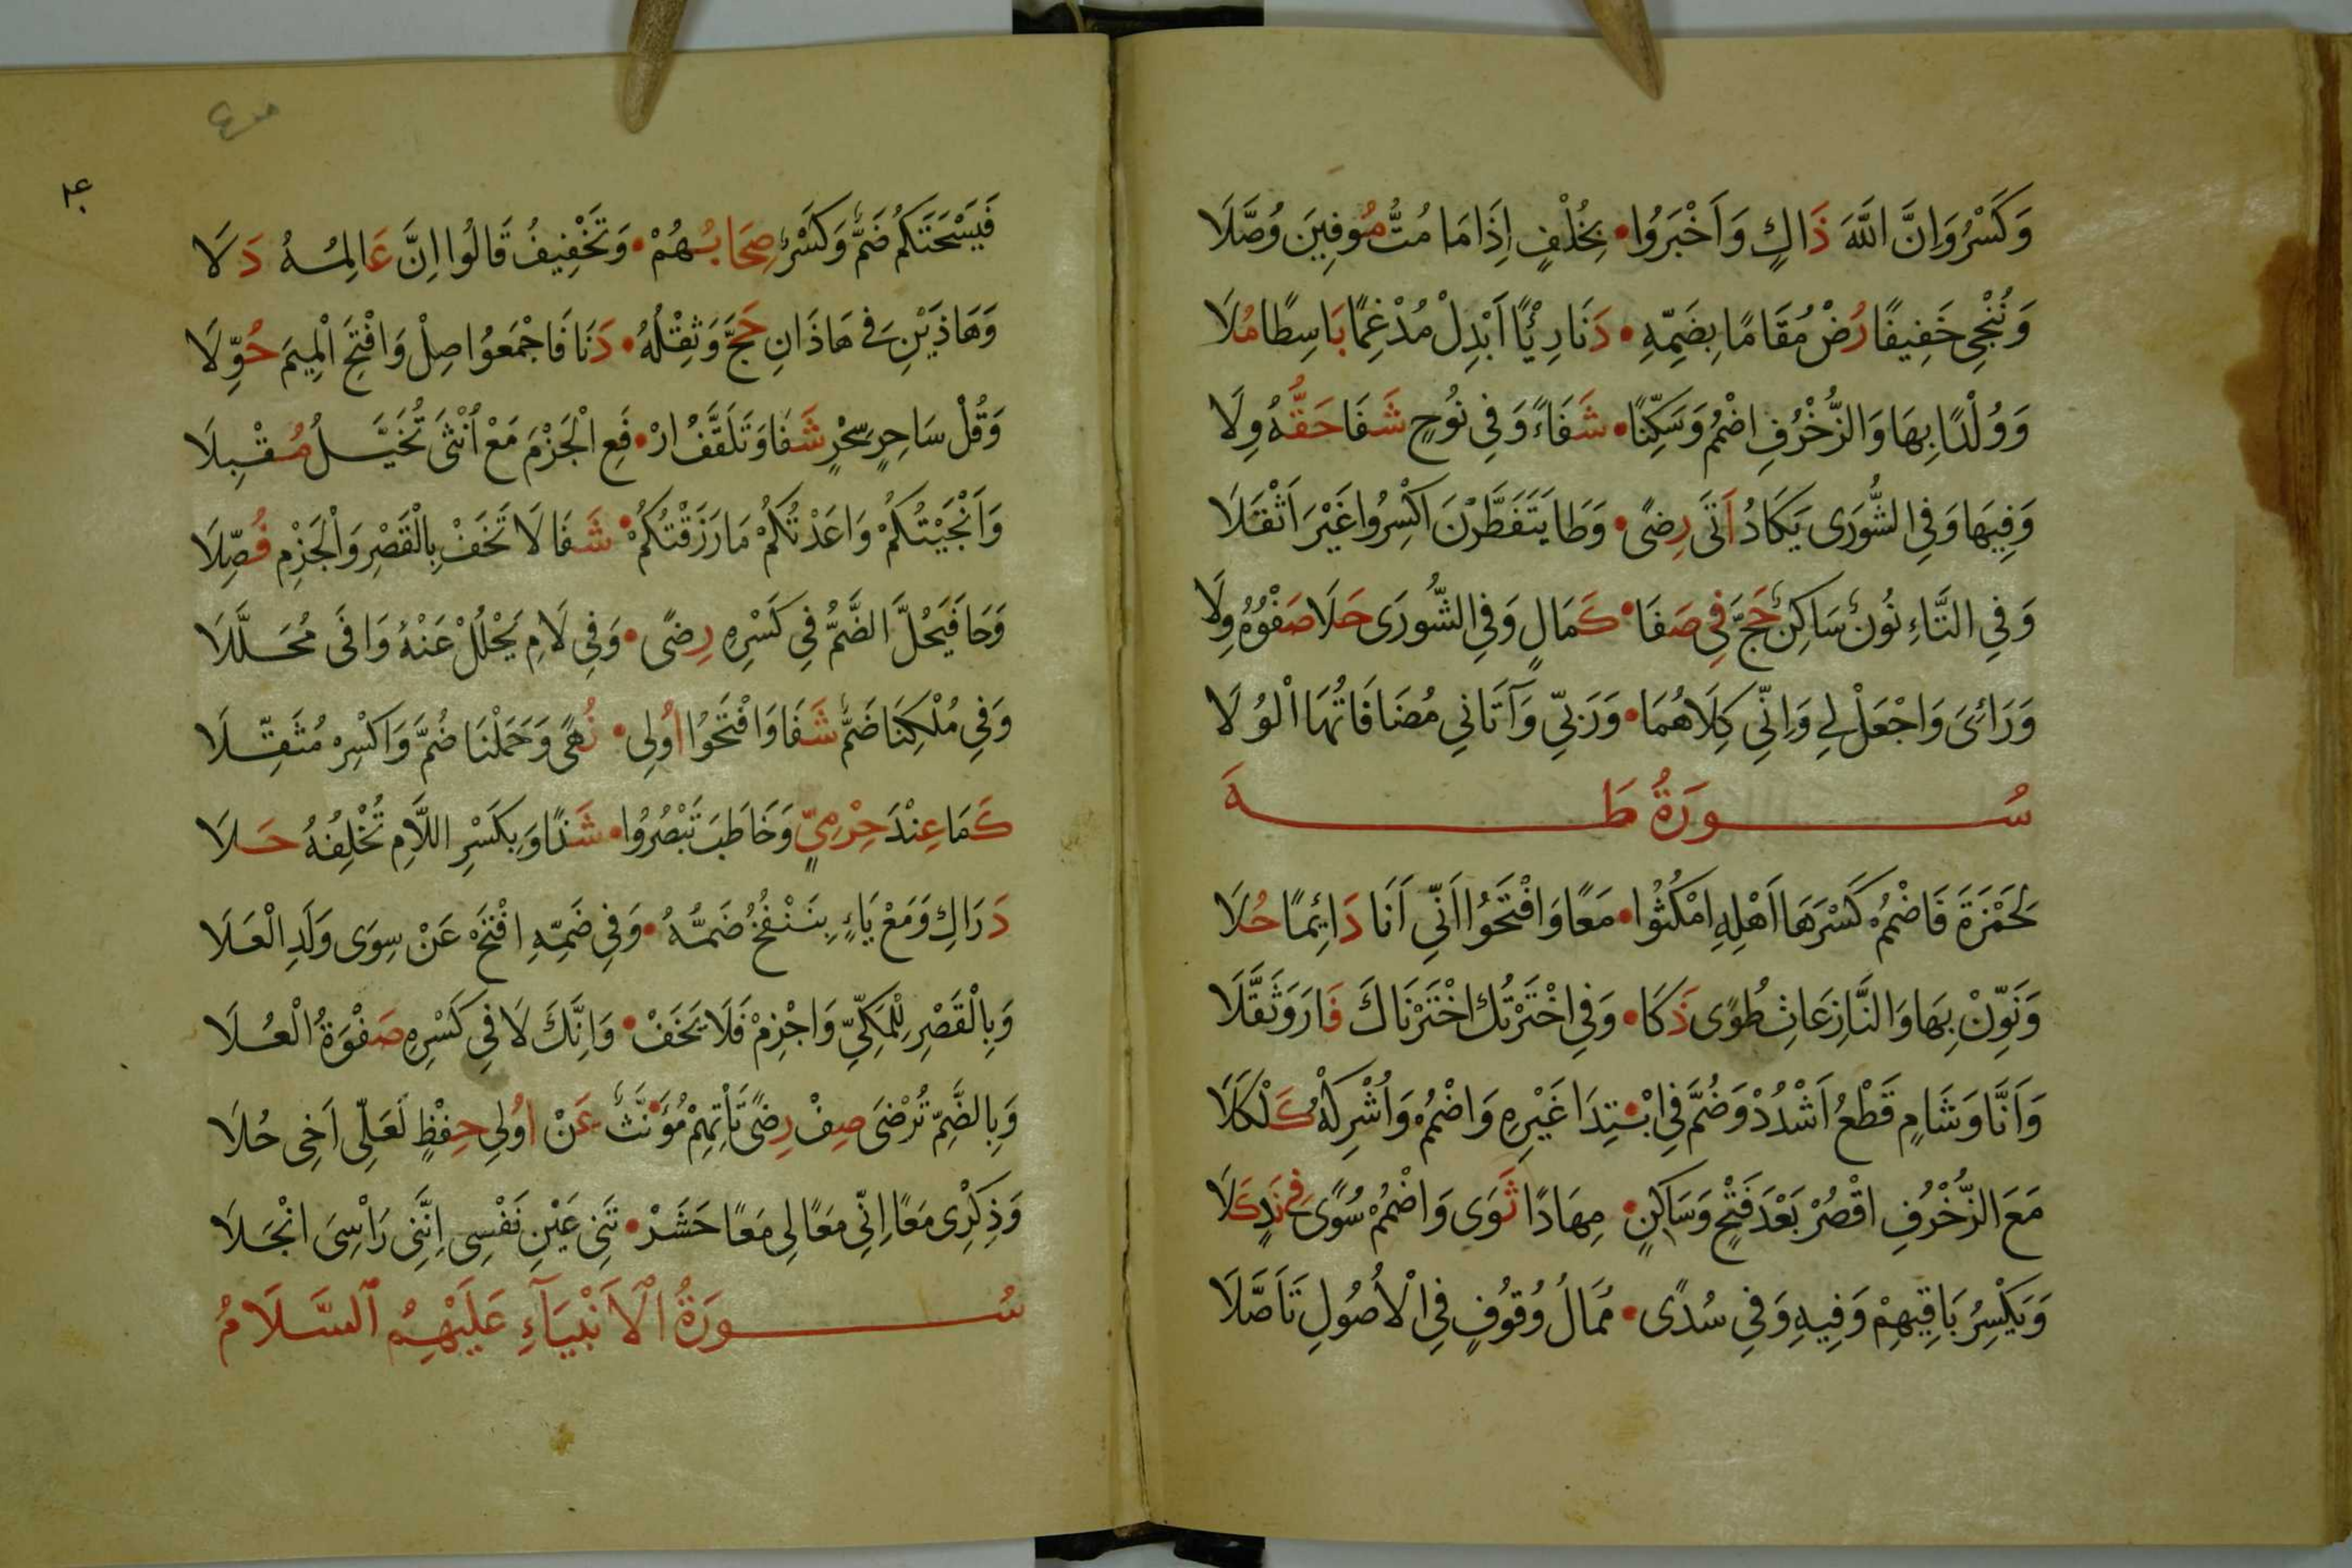 وَكَسْرُ وَاِنَّ اللَّهَ ذَاكٍ وَاَخْبَرُوا • بِخُلْفٍ اِذَا مَا مُتُّ مُوفِينَ وُصَّلَا
وَنُنْجِى خَفِيفًا رُضْ مُقَامًا بِضَمِّهِ • دَنَا رِئْيًا اَبْدِلْ مُدْغِمًا بَاسِطًا مُلَا
وَوُلْدًا بِهَا وَالزُّخْرُفِ اضْمُمْ وَسَكِّنًا • شَفَاءً وَفِي نُوحٍ شَفَا حَقُّهُ وِلَا
وَفِيهَا وَفِي الشُّورَى يَكَادُ اَتَى رِضًى • وَطَا يَتَفَطَّرْنَ اكْسِرُوا غَيْرَ اَثْقَلَا
وَفِي التَّاءِ نُونٌ سَاكِنٌ حَجَّ فِي صَفَا • كَمَالٍ وَفِي الشُّورَى حَلَا صَفْوُهُ وِلَا
وَرَائِىَ وَاجْعَلْ لِي وَاِنِّي كِلَاهُمَا • وَرَبِّي وَآتَانِي مُضَافَاتُهَا الْوُلَا
سُورَةُ طَهَ
لِحَمْزَةَ فَاضْمُمْ كَسْرَهَا اَهْلِهِ امْكُثُوا • مَعًا وَافْتَحُوا اَنِّي اَنَا دَائِمًا حُلَا
وَنَوِّنْ بِهَا وَالنَّازِعَاتِ طُوًى ذَكَا • وَفِي اخْتَرْتُكَ اخْتَرْنَاكَ فَازَ وَثَقَّلَا
وَاَنَّا وَشَامٍ قَطْعُ اَشْدُدْ وَضُمَّ فِي ابْتِدَا غَيْرِهِ وَاضْمُمْ وَاُشْرِكْهُ كَلْكَلَا
مَعَ الزُّخْرُفِ اقْصُرْ بَعْدَ فَتْحٍ وَسَاكِنٍ • مِهَادًا ثَوَى وَاضْمُمْ سُوًى فِي نَدٍ كَلَا
وَيَكْسِرُ بَاقِيهِمْ وَفِيهِ وَفِي سُدًى • مُمَالُ وُقُوفٍ فِي الْاُصُولِ تَاَصَّلَا
فَيَسْحَتَكُمْ ضَمٌّ وَكَسْرٌ صِحَابُهُمْ • وَتَخْفِيفُ قَالُوا اِنَّ عَالِمُهُ دَلَا
وَهَاذَيْنِ فِي هَاذَانِ حَجَّ وَثِقْلُهُ • دَنَا فَاجْمَعُوا صِلْ وَافْتَحِ الْمِيمَ حُوَّلَا
وَقُلْ سَاحِرٍ سِحْرٍ شَفَا وَتَلَقَّفُ ارْ • فَعِ الْجَزْمَ مَعْ اُنْثَى تُخَيَّلُ مُقْبِلَا
وَاَنْجَيْتُكُمْ وَاعَدْتُكُمْ مَا رَزَقْتُكُمْ • شَفَا لَا تَخَفْ بِالْقَصْرِ وَالْجَزْمِ فُصِّلَا
وَحَا فَيَحُلَّ الضَّمُّ فِي كَسْرِهِ رِضًى • وَفِي لَامِ يَحْلُلْ عَنْهُ وَافَى مُحَلَّلَا
وَفِي مُلْكِنَا ضَمٌّ شَفَا وَافْتَحُوا اُولِى • نُهًى وَحَمَلْنَا ضُمَّ وَاكْسِرْ مُثَقِّلَا
كَمَا عِنْدَ حِرْمِيٍّ وَخَاطَبَ تَبْصُرُوا • شَذًا وَبِكَسْرِ اللَّامِ تُخْلِفُهُ حَلَا
دَرَاكِ وَمَعْ يَاءٍ بِنَنْفُخُ ضَمُّهُ • وَفِي ضَمِّهِ افْتَحْ عَنْ سِوَى وَلَدِ الْعَلَا
وَبِالْقَصْرِ لِلْمَكِّيِّ وَاجْزِمْ فَلَا يَخَفْ • وَاِنَّكَ لَا فِي كَسْرِهِ صَفْوَةُ الْعُلَا
وَبِالضَّمِّ تُرْضَى صِفْ رِضًى تَاْتِهِمْ مُؤَنَّثٌ عَنْ اُولِي حِفْظٍ لَعَلِّى اَخِى حُلَا
وَذِكْرِى مَعًا اِنِّي مَعًا لِى مَعًا حَشَرْ • تَنِى عَيْنِ نَفْسِى اِنَّنِى رَاْسِىَ انْجَلَا
سُورَةُ الْاَنْبِيَآءِ عَلَيْهِمُ السَّلَامُ